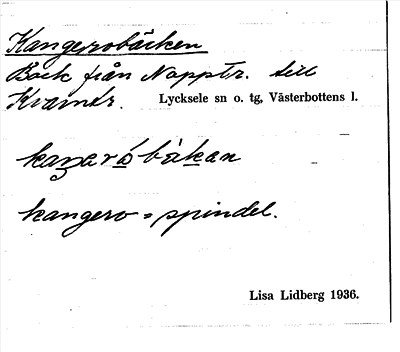 Kangerobäcken
Bäck från Napptr. till
Kvarntr. Lycksele sn o. tg, Västerbottens l.
kaŋərå̀bä̀kan
kangero = spindel.
Lisa Lidberg 1936.